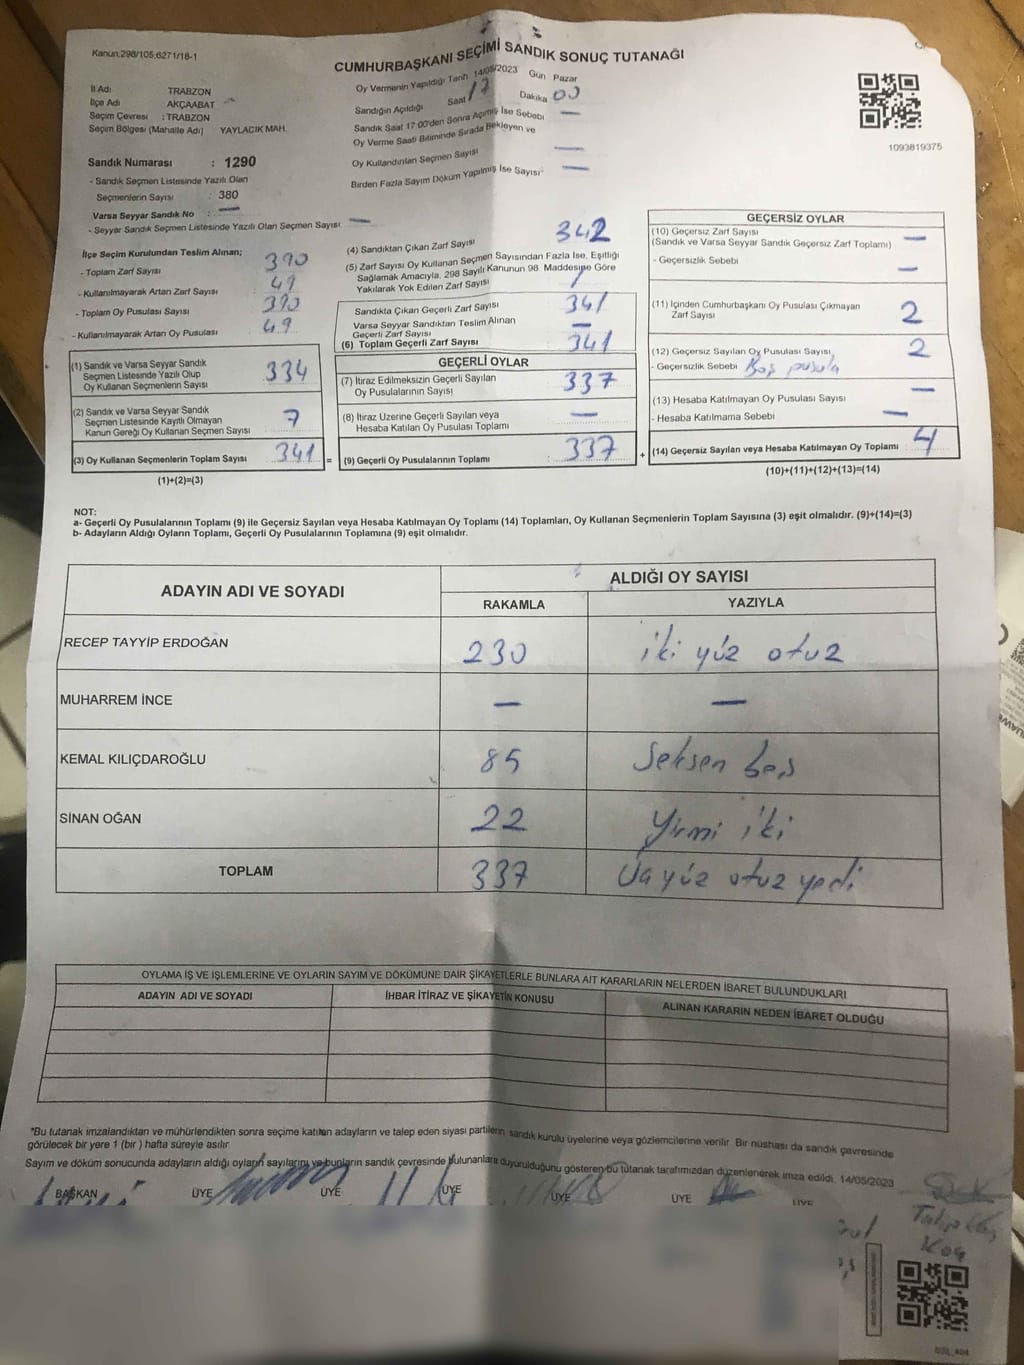 Kanun:298/105,6271/18-1
CUMHURBAŞKANI SEÇİMİ SANDIK SONUÇ TUTANAĞI
İl Adı TRABZON
İlçe Adı AKÇAABAT
Seçim Çevresi : TRABZON
Seçim Bölgesi (Mahalle Adı) YAYLACIK MAH.
Sandık Numarası : 1290
- Sandık Seçmen Listesinde Yazılı Olan
Seçmenlerin Sayısı : 380
Varsa Seyyar Sandık No : —
- Seyyar Sandık Seçmen Listesinde Yazılı Olan Seçmen Sayısı: —
Oy Vermenin Yapıldığı Tarih 14/05/2023 Gün Pazar
Sandığın Açıldığı Saat 17 Dakika 00
Sandık Saat 17:00'den Sonra Açılmış İse Sebebi —
Oy Verme Saati Bitiminde Sırada Bekleyen ve
Oy Kullandırılan Seçmen Sayısı —
Birden Fazla Sayım Döküm Yapılmış İse Sayısı —
1093819375
İlçe Seçim Kurulundan Teslim Alınan;
- Toplam Zarf Sayısı 390
- Kullanılmayarak Artan Zarf Sayısı 49
- Toplam Oy Pusulası Sayısı 390
- Kullanılmayarak Artan Oy Pusulası 49
(1) Sandık ve Varsa Seyyar Sandık
Seçmen Listesinde Yazılı Olup
Oy Kullanan Seçmenlerin Sayısı 334
(2) Sandık ve Varsa Seyyar Sandık
Seçmen Listesinde Kayıtlı Olmayan
Kanun Gereği Oy Kullanan Seçmen Sayısı 7
(3) Oy Kullanan Seçmenlerin Toplam Sayısı 341 =
(1)+(2)=(3)
(4) Sandıktan Çıkan Zarf Sayısı 342
(5) Zarf Sayısı Oy Kullanan Seçmen Sayısından Fazla İse, Eşitliği
Sağlamak Amacıyla, 298 Sayılı Kanunun 98. Maddesine Göre
Yakılarak Yok Edilen Zarf Sayısı 1
Sandıkta Çıkan Geçerli Zarf Sayısı 341
Varsa Seyyar Sandıktan Teslim Alınan
Geçerli Zarf Sayısı —
(6) Toplam Geçerli Zarf Sayısı 341
GEÇERLİ OYLAR
(7) İtiraz Edilmeksizin Geçerli Sayılan
Oy Pusulalarının Sayısı 337
(8) İtiraz Üzerine Geçerli Sayılan veya
Hesaba Katılan Oy Pusulası Toplamı —
(9) Geçerli Oy Pusulalarının Toplamı : 337 +
GEÇERSİZ OYLAR
(10) Geçersiz Zarf Sayısı
(Sandık ve Varsa Seyyar Sandık Geçersiz Zarf Toplamı) —
- Geçersizlik Sebebi —
(11) İçinden Cumhurbaşkanı Oy Pusulası Çıkmayan
Zarf Sayısı 2
(12) Geçersiz Sayılan Oy Pusulası Sayısı 2
- Geçersizlik Sebebi Boş pusula
(13) Hesaba Katılmayan Oy Pusulası Sayısı —
- Hesaba Katılmama Sebebi —
(14) Geçersiz Sayılan veya Hesaba Katılmayan Oy Toplamı 4
(10)+(11)+(12)+(13)=(14)
NOT:
a- Geçerli Oy Pusulalarının Toplamı (9) ile Geçersiz Sayılan veya Hesaba Katılmayan Oy Toplamı (14) Toplamları, Oy Kullanan Seçmenlerin Toplam Sayısına (3) eşit olmalıdır. (9)+(14)=(3)
b- Adayların Aldığı Oyların Toplamı, Geçerli Oy Pusulalarının Toplamına (9) eşit olmalıdır.
ADAYIN ADI VE SOYADI ALDIĞI OY SAYISI
RAKAMLA YAZIYLA
RECEP TAYYİP ERDOĞAN 230 iki yüz otuz
MUHARREM İNCE — —
KEMAL KILIÇDAROĞLU 85 Seksen beş
SİNAN OĞAN 22 Yirmi iki
TOPLAM 337 Üçyüz otuz yedi
OYLAMA İŞ VE İŞLEMLERİNE VE OYLARIN SAYIM VE DÖKÜMÜNE DAİR ŞİKAYETLERLE BUNLARA AİT KARARLARIN NELERDEN İBARET BULUNDUKLARI
ADAYIN ADI VE SOYADI İHBAR İTİRAZ VE ŞİKAYETİN KONUSU ALINAN KARARIN NEDEN İBARET OLDUĞU
*Bu tutanak imzalandıktan ve mühürlendikten sonra seçime katılan adayların ve talep eden siyasi partilerin sandık kurulu üyelerine veya gözlemcilerine verilir. Bir nüshası da sandık çevresinde
görülecek bir yere 1 (bir ) hafta süreyle asılır.
Sayım ve döküm sonucunda adayların aldığı oyların sayılarını ve bunların sandık çevresinde bulunanlara duyurulduğunu gösteren bu tutanak tarafımızdan düzenlenerek imza edildi. 14/05/2023
BAŞKAN ÜYE ÜYE ÜYE ÜYE ÜYE ÜYE